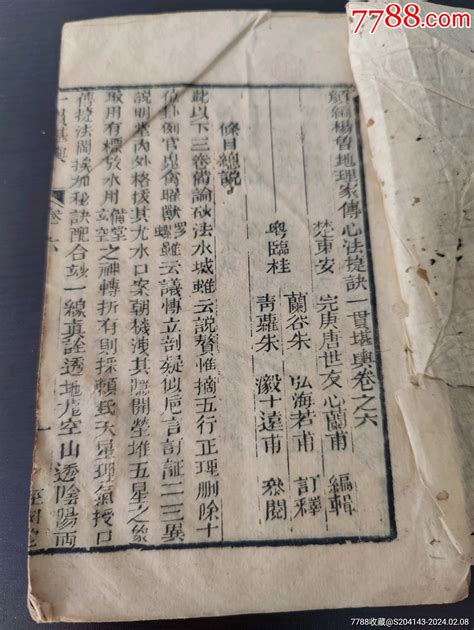 7788.com
頖編楊曾地理家傳心法捷訣一貫堪輿卷之六
楚東安 完庚唐世友心蘭甫 編輯
蘭谷朱 弘海若甫 訂釋
粵臨桂 青蘿朱 瀫十遠甫 叅閱
條目總說
此以下三卷備論砂法水城雖云說贅惟摘五行正理刪除十
位卦例官鬼禽曜獸雖云議傳立剖疑似卮言訂証二三異
說明堂內外格拔其尤水口案朝機洩其隱開塋堆五星之象
取用有標放水用備堂立空之神轉折有則採賴氏天星理氣授口
傳捷法閩挨加秘訣配合妙一線眞詮透地龍空山透陰陽兩
一貫堪輿
卷六
7788收藏@S204143-2024.02.08